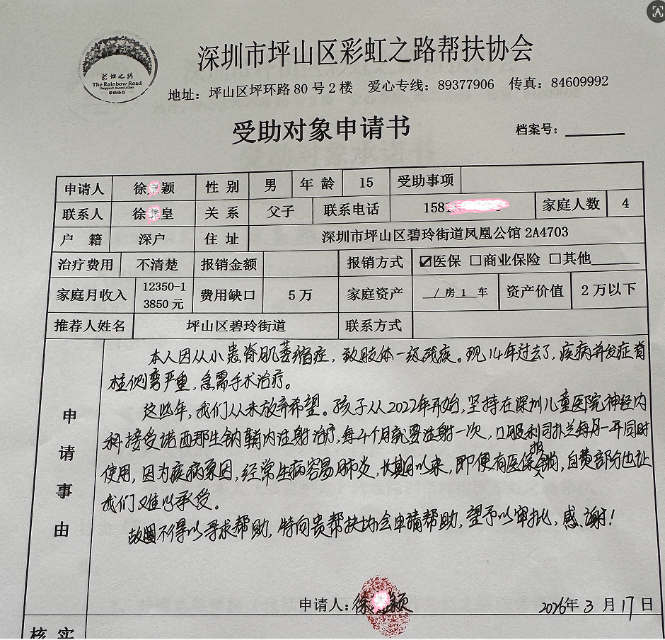 艺虹之路
The Rainbow Road
深圳市坪山区彩虹之路帮扶协会
地址：坪山区坪环路80号2楼 爱心专线：89377906 传真：84609992
受助对象申请书
档案号：
申请人 徐 颖 性别 男 年龄 15 受助事项
联系人 徐 皇 关系 父子 联系电话 158 家庭人数 4
户籍 深户 住址 深圳市坪山区碧玲街道凤凰公馆2A4703
治疗费用 不清楚 报销金额 报销方式 ☑医保 □商业保险 □其他
家庭月收入 12350-1 费用缺口 5万 家庭资产 / 房 1 车 资产价值 2万以下
3850元
推荐人姓名 坪山区碧玲街道 联系方式
申请事由
本人因从小患脊肌萎缩症，致肢体一级残疾。现14年过去了，疾病并发症脊
柱侧弯严重，急需手术治疗。
这些年，我们从未放弃希望。孩子从2022年开始，坚持在深圳儿童医院神经内
科接受诺西那生钠鞘内注射治疗，每4个月就要注射一次，口服利司扑兰每月一瓶同时
使用，因为疾病原因，经常生病容易肺炎，长期以来，即便有医保报销，自费部分也让
我们难以承受。
故不得以寻求帮助，特向贵帮扶协会申请帮助，望予以审批，感谢！
申请人：徐 颖 2026年3月17日
核实